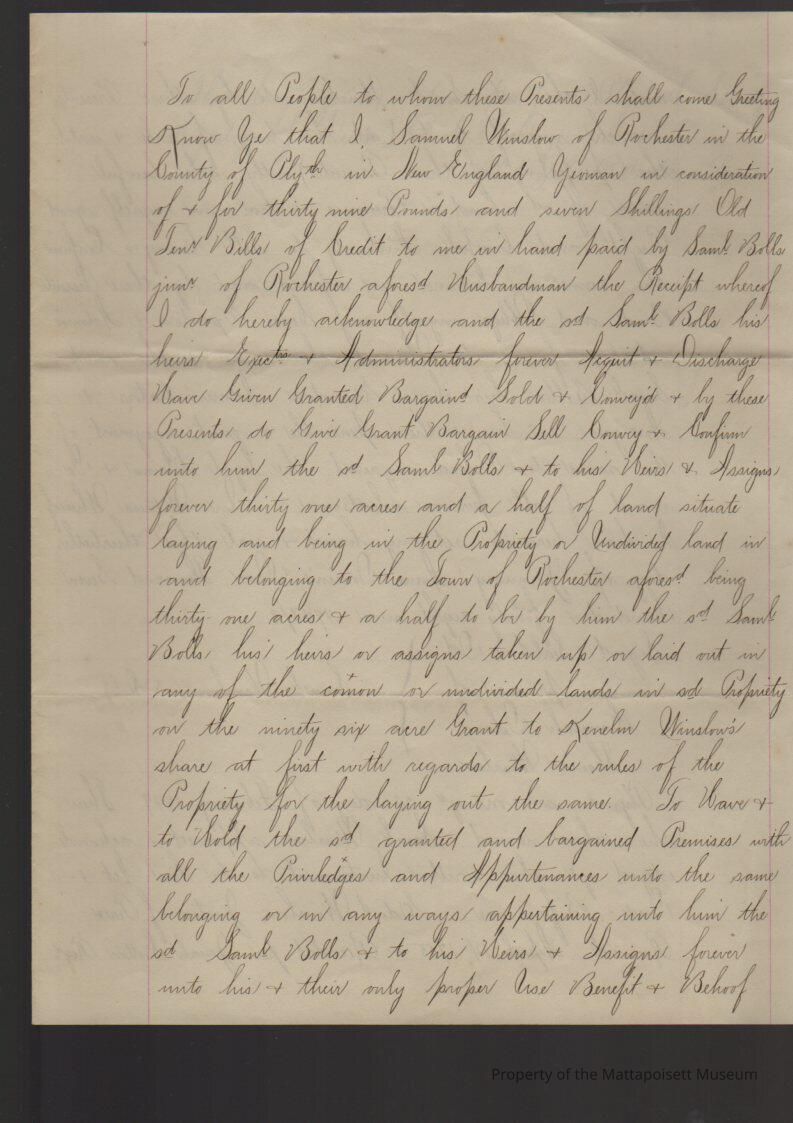 To all People to whom these Presents shall come Greeting
Know Ye that I, Samuel Winslow of Rochester in the
County of Plyth in New England Yeoman in consideration
of & for thirty nine Pounds and seven Shillings Old
Tenr Bills of Credit to me in hand paid by Saml Bolls
junr of Rochester aforesd Husbandman the Receipt whereof
I do hereby acknowledge and the sd Saml Bolls his
heirs Exectrs & Administrators forever Acquit & Discharge
Have Given Granted Bargaind Sold & Convey'd & by these
Presents do Give Grant Bargain Sell Convey & Confirm
unto him the sd Saml Bolls & to his Heirs & Assigns
forever thirty one acres and a half of land situate
laying and being in the Propriety or Undivided land in
and belonging to the Town of Rochester aforesd being
thirty one acres & a half to be by him the sd Saml
Bolls his heirs or assigns taken up or laid out in
any of the comon or undivided lands in sd Propriety
on the ninety six acre Grant to Kenelm Winslow's
share at first with regards to the rules of the
Propriety for the laying out the same. To Have &
to Hold the sd granted and bargained Premises with
all the Priviledges and Appurtenances unto the same
belonging or in any ways appertaining unto him the
sd Saml Bolls & to his Heirs & Assigns forever
unto his & their only proper Use Benefit & Behoof
Property of the Mattapoisett Museum